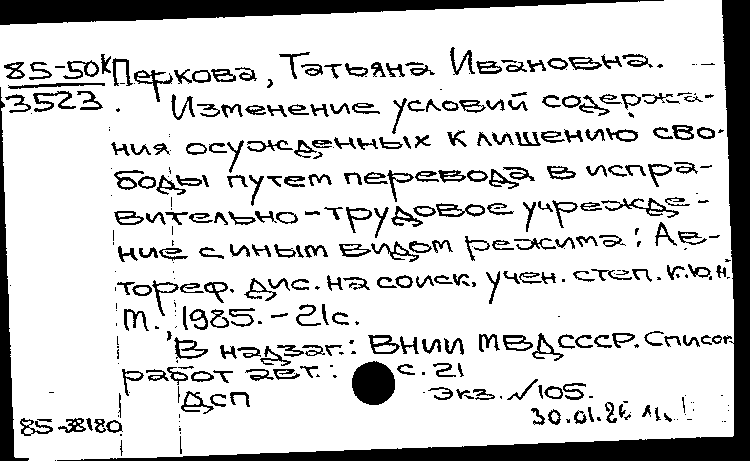 85-50к Перкова, Татьяна Ивановна.
3523. Изменение условий содержа-
ния осужденных к лишению сво-
боды путем перевода в испра-
вительно-трудовое учрежде-
ние с иным видом режима: Ав-
тореф. дис. на соиск. учен. степ. к.ю.н
М., 1985.-21с.
В надзаг.: ВНИИ МВД СССР. Список
работ авт.: с.21
ДСП экз. №105.
85-38180 30.01.86